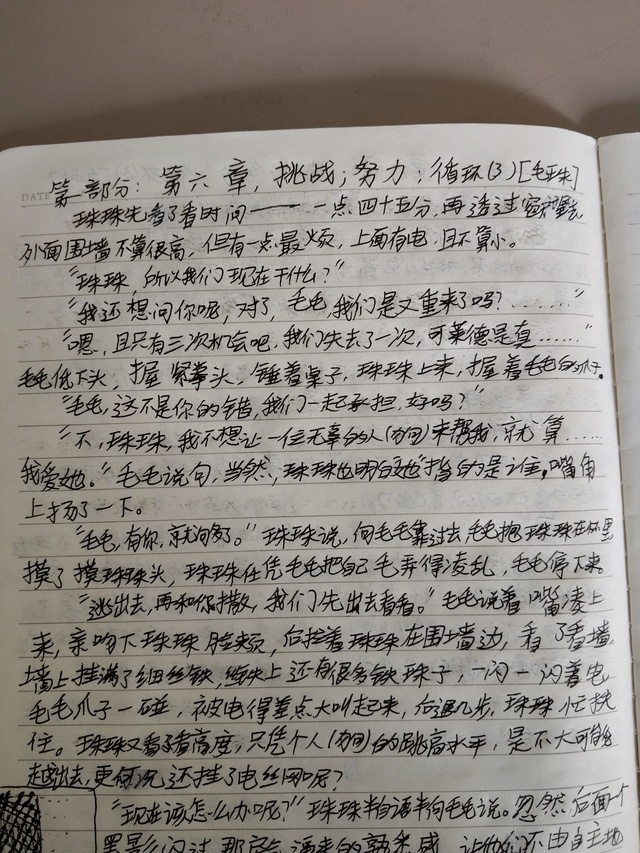 DATE
第一部分：第六章，挑战；努力；循环(3)[毛珠]
珠珠先看了看时间——一点四十五分，再透过窗
外面围墙不算很高，但有一点最烦，上面有电，且不算小。
“珠珠，所以我们现在干什么？”
“我还想问你呢，对了，毛毛，我们是又重来了吗？……”
“嗯，且只有三次机会吧，我们失去了一次，可莱德是真……”
毛毛低下头，握紧拳头，锤着桌子，珠珠上来，握着毛毛的爪子。
“毛毛，这不是你的错，我们一起承担，好吗？”
“不，珠珠，我不想让一位无辜的人(狗)来帮我，就算……
我爱她。”毛毛说句，当然，珠珠也明白“她”指的是谁，嘴角
上扬了一下。
“毛毛，有你，就够了。”珠珠说，向毛毛靠过去，毛毛抱珠珠在怀里
摸了摸珠珠头，珠珠任凭毛毛把自己毛弄得凌乱，毛毛停下来。
“逃出去，再和你撒，我们先出去看看。”毛毛说着嘴凑上
来，亲吻下珠珠脸颊，后拉着珠珠在围墙边，看了看墙
墙上挂满了细丝铁，丝上还有很多铁珠子，一闪一闪着电
毛毛爪子一碰，被电得差点大叫起来，后退几步，珠珠忙扶
住。珠珠又看了看高度，只凭个人(狗)的跳高水平，是不大可能
越出去，更何况还挂了电丝网呢？
“现在该怎么办呢？”珠珠半自语半向毛毛说。忽然后面一个
黑影闪过，那 的熟悉感，让他们不由自主地